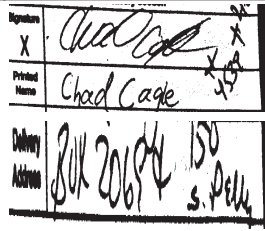 Signature
X
Chad Cagle
Printed
Name
Chad Cagle
Delivery
Address
BOX 2069
150
S. Pelly